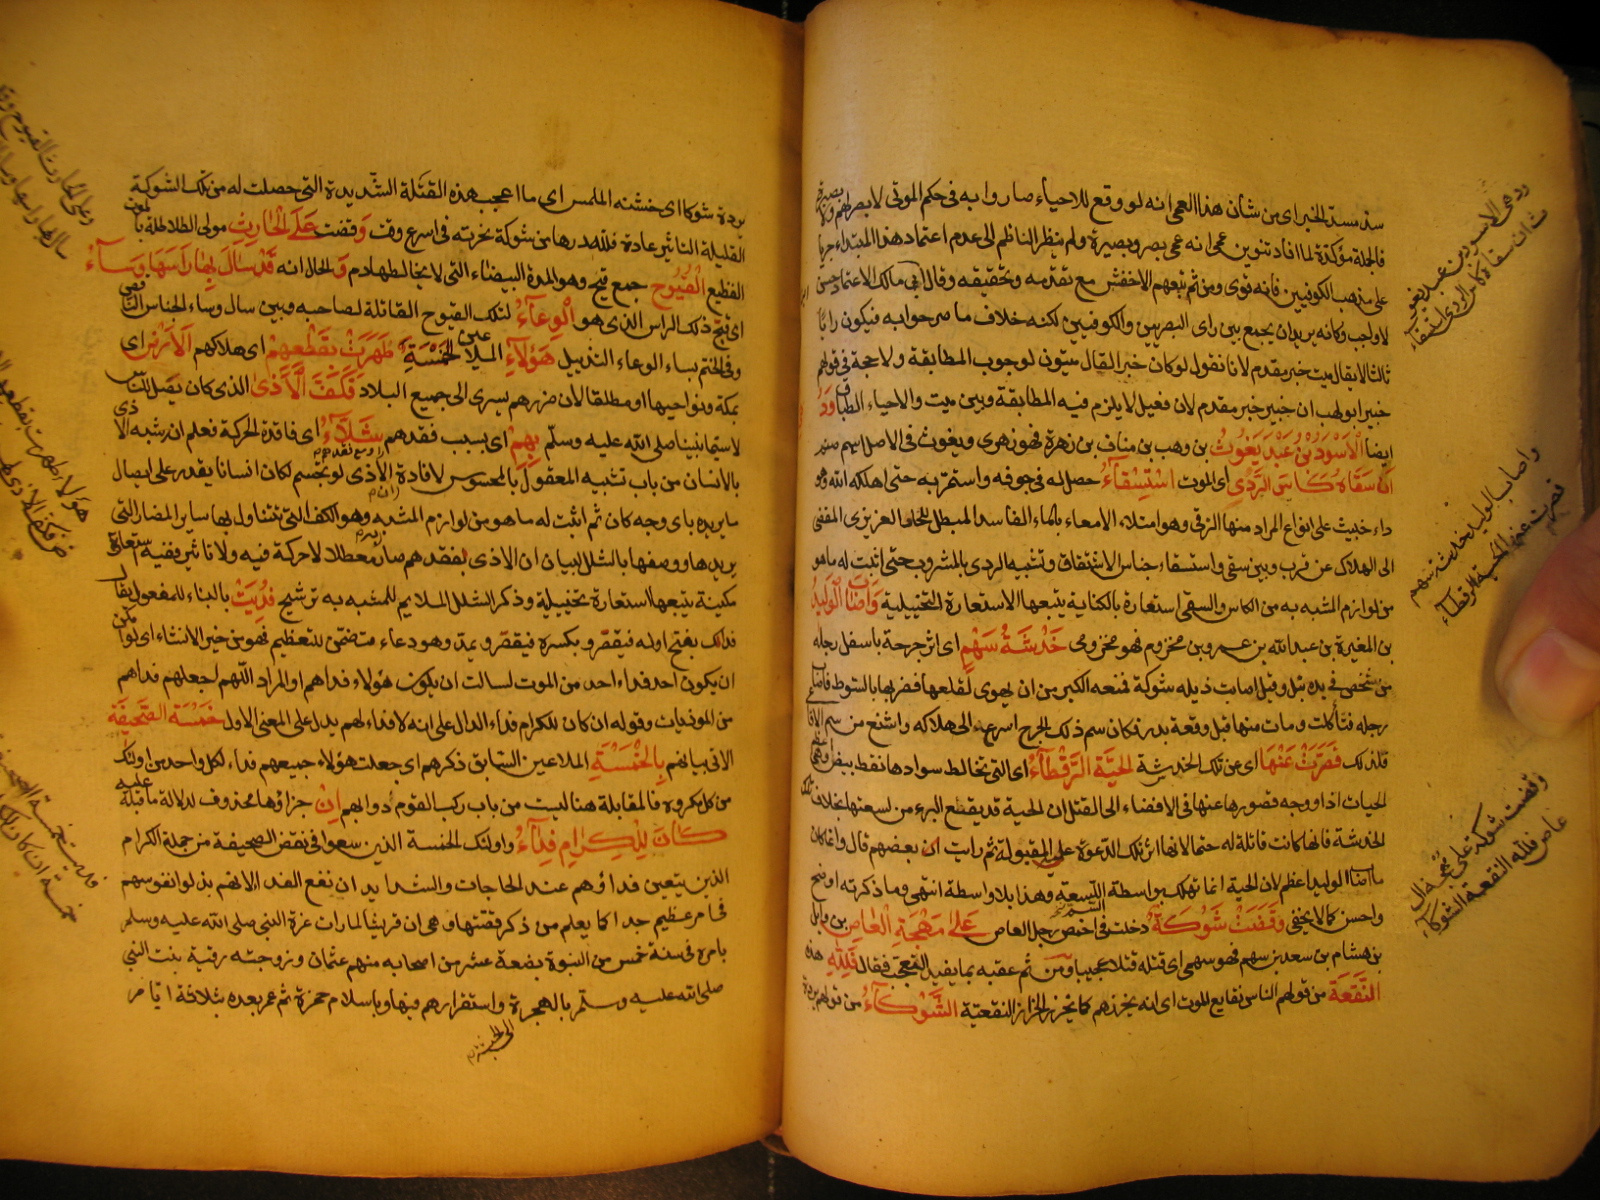 سد مسد الخبر اى من شأن هذا العمى انه لو وقع للاحياء صاروا به فى حكم الموتى لا بصر لهم ولا بصيرة
فالجملة مؤكدة لما افاد تنوين عمى انه عمى بصر وبصيرة ولم ينظر الناظم الى عدم اعتماد هذا المبتدا جريا
على مذهب الكوفيين فانه قوى ومن ثم تبعهم الاخفش مع تقدمه وتحقيقه وقال ابن مالك الاعتماد حسن
لا واجب وكانه يريد ان يجمع بين راى البصريين والكوفيين لكنه خلاف ما صرحوا به فيكون رايا
ثالثا لا يقال ميت خبر مقدم لانا نقول لو كان خبرا لقال ميتون لوجوب المطابقة ولا حجة فى قولهم
خبير بنو لهب ان خبير خبر مقدم لان فعيل لا يلزم فيه المطابقة وبين ميت والاحياء الطباق ود
ايضا الاسود بن عبد يغوث بن وهب بن مناف بن زهرة فهو زهرى ويغوث فى الاصل اسم صنم
ان سقاه كاس الردى اى الموت استسقاء حصل له فى جوفه واستمر به حتى اهلكه الله وهو
داء خبيث على انواع المراد منها الزقى وهو امتلاء الامعاء بالماء الفاسد المبطل للحار الغريزى المفضى
الى الهلاك عن قرب وبين سقى واستسقاء جناس الاشتقاق وتشبيه الردى بالمشروب حتى اثبت له ما هو
من لوازم المشبه به من الكاس والسقى استعارة بالكناية يتبعها الاستعارة التخييلية واصاب الوليد
بن المغيرة بن عبد الله بن عمرو بن مخزوم فهو مخزومى خدشة سهم اى اثر جرحة باسفل رجله
من شخص فى يده نبل وقيل اصابت ذيله شوكة فمنعه الكبر من ان يهوى لقلعها فضربها بالسوط فاصابت
رجله فتأكلت ومات منها قبل وقعة بدر فكان سم ذلك الجرح اسرع الى هلاكه واشنع من سم الافاعى
فلذلك قصرت عنها اى عن تلك الخدشة الحية الرقطاء اى التى تخالط سوادها نقط بيض وهى اعظم
الحيات اذا ووجه قصورها عنها فى الافضاء الى القتل ان الحية قد يقع البرء من لسعتها بخلاف تلك
الخدشة فانها كانت قاتلة له حتما لانها اثر تلك الدعوة المقبولة ثم رايت ان بعضهم قال وانما كان
ما اصاب الوليد اعظم لان الحية انما تهلك بواسطة اللسعة وهذا بلا واسطة انتهى وما ذكرته اوضح
واحسن كما لا يخفى وقضت شوكة دخلت فى اخمص رجل العاص على مهجة العاص بن وائل
بن هشام بن سعد بن سهم فهو سهمى اى قتلته قتلا عجيبا ومن ثم عقبه بما يفيد التعجب فقال فلله هذه
النقعة من قولهم الناس نقايع الموت اى انه يجزرهم كما يجزر الجزار النقيعة الشوكاء من قولهم بردة
ردهى الاسود بن عبد يغوث
ان سقاه كاس الردى استسقاء
واصاب الوليد خدشة سهم
قصرت عنها الحية الرقطاء
وقضت شوكة على مهجة ال
عاص فلله النقعة الشوكاء
بردة شوكا اى خشنه الملمس اى ما اعجب هذه القتلة الشديدة التى حصلت له من تلك الشوكة
القليلة التاثير عادة فلله درها من شوكة نحرته فى اسرع وقت وقضت على الحارث مولى الطلاطلة بالمعن
الفظيع القيوح جمع قيح وهو المدة البيضاء التى لا يخالطها دم والحال انه قد سال بها راسه وساء
اى قبح ذلك الراس الذى هو الوعاء لتلك القيوح القاتلة لصاحبه وبين سال وساء الجناس الناقص
وفى الختم بساء الوعاء التذييل هؤلاء الملاعين الخمسة طهرت بقطعهم اى هلاكهم الارض اى
بمكة ونواحيها او مطلقا لان ضررهم يسرى الى جميع البلاد فكف الاذى الذى كان يصل للناس
لا سيما نبينا صلى الله عليه وسلم بهم اى بسبب فقدهم شلاء اى فاقدة الحركة فعلم انه شبه الاذى
بالانسان من باب تشبيه المعقول بالمحسوس لافادة ان الاذى لو تجسم لكان انسانا يقدر على ايصال
ما يريده باى وجه كان ثم اثبت له ما هو من لوازم المشبه به وهو الكف التى تتناول بها ساير المضار التى
يريدها ووصفها بالشلل لبيان ان الاذى بفقدهم صار معطلا لا حركة فيه ولا تاثير ففيه استعارة
مكنية يتبعها استعارة تخييلية وذكر الشلل الملايم للمشبه به ترشيح فديت بالبناء للمفعول يقال
فداك بفتح اوله فيقصر وبكسره فيقصر ويمد وهو دعاء متضمن للتعظيم فهو من خبر الانشاء اى لو امكن
ان يكون احد فداء احد من الموت لسالت ان يكون هؤلاء فداهم او المراد اللهم اجعلهم فداهم
من الموذيات وقوله ان كان للكرام فداء الدال على انه لا فداء لهم يدل على المعنى الاول خمسة الصحيفة
الاتى بيانهم بالخمسة الملاعين السابق ذكرهم اى جعلت هؤلاء جميعهم فداء لكل واحد من اولئك
من كل مكروه فالمقابلة هنا ليست من باب ركب القوم دوابهم ان جزاؤها محذوف لدلالة ما قبله عليه
كان للكرام فداء واولئك الخمسة الذين سعوا فى نقض الصحيفة من جملة الكرام
الذين يتعين فداؤهم عند الحاجات والشدايد ان نفع الفداء لانهم بذلوا نفوسهم
فى امر عظيم جدا كما يعلم من ذكر قصتها وهى ان قريشا لما رات عزة النبى صلى الله عليه وسلم
بامره فى سنة خمس من النبوة بضعة عشر من اصحابه منهم عثمان وزوجته رقية بنت النبى
صلى الله عليه وسلم بالهجرة واستقرارهم فيها وباسلام حمزة ثم عمر بعده بثلاثة ايام
الى الحبشة
وعلى الحارث القيوح وقد
سال بها راسه وسا
هؤلا طهرت بقطعهم
فكف الاذى
فديت خمسة الصحيفة
خمسة ان كان